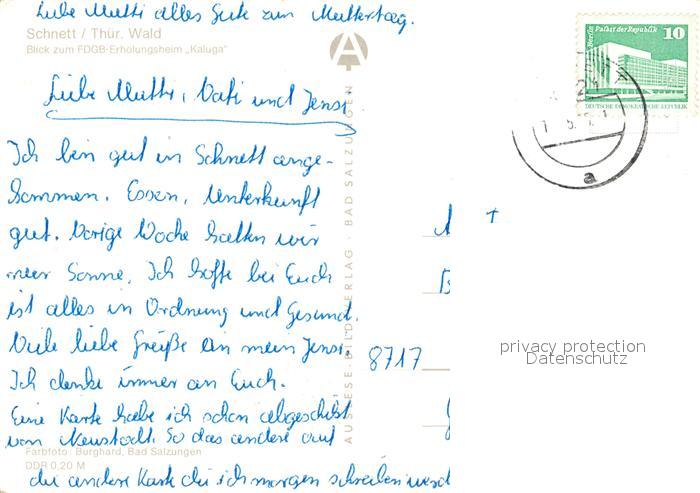 Liebe Mutti alles Gute zum Muttertag.
Schnett / Thür. Wald
Blick zum FDGB-Erholungsheim „Kaluga"
Liebe Mutti, Vati und Jens,
Ich bin gut in Schnett ange-
kommen. Essen, Unterkunft
gut. Vorige Woche hatten wir
nur Sonne. Ich hoffe bei Euch
ist alles in Ordnung und Gesund.
Viele liebe Grüße an mein Jens.
Ich denke immer an Euch.
Eine Karte habe ich schon abgeschikt
von Neustadt. So das andere auf
die andere Karte die ich morgen schreiben werd
Farbfoto: Burghard, Bad Salzungen
DDR 0,20 M
AUSLESE-BILD-VERLAG · BAD SALZUNGEN
Berlin Palast der Republik
10
DEUTSCHE DEMOKRATISCHE REPUBLIK
a
8717
privacy protection
Datenschutz